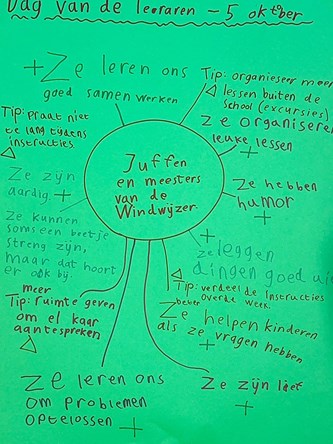 Dag van de leeraren - 5 oktober
+ Ze leren ons
goed samen werken
Tip: organiseer meer
lessen buiten de
school (excursies)
Ze organiseren
leuke lessen
+
Tip: praat niet
te lang tijdens
instructies
Juffen
en meesters
van de
Windwijzer
Ze zijn
aardig. +
Ze hebben
humor
+
Ze kunnen
soms een beetje
streng zijn,
maar dat hoort
er ook bij.
+
ze leggen
dingen goed uit
Tip: verdeel de instructies
beter over de week.
meer
Tip: ruimte geven
om el kaar
aan te spreken
Ze helpen kinderen
als ze vragen hebben
+
Ze leren ons
om problemen
op te lossen +
Ze zijn lief
+